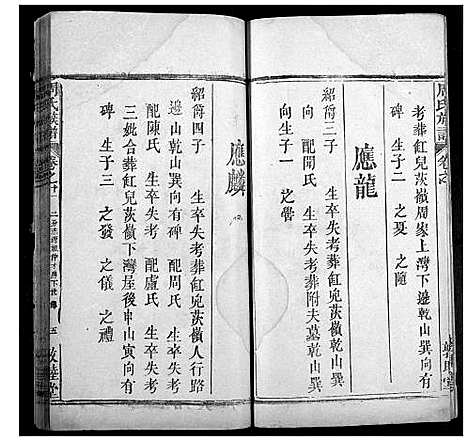 周氏族譜
卷之
考葬釭兒茨嶺周家上灣下邊乾山巽向有
碑 生子二 之夏 之隨
應龍
紹爵三子 生卒失考葬釭兒茨嶺乾山巽
向 配閒氏 生卒失考葬附夫墓乾山巽
向生子一 之
應麟
紹爵四子 生卒失考葬釭兒茨嶺人行路
邊山乾山巽向有碑 配周氏 生卒失考
配陳氏 生卒失考 配盧氏 生卒失考
三妣合葬釭兒茨嶺下灣屋後申山寅向有
碑 生子三 之發 之儀 之禮
周氏族譜
卷之
五